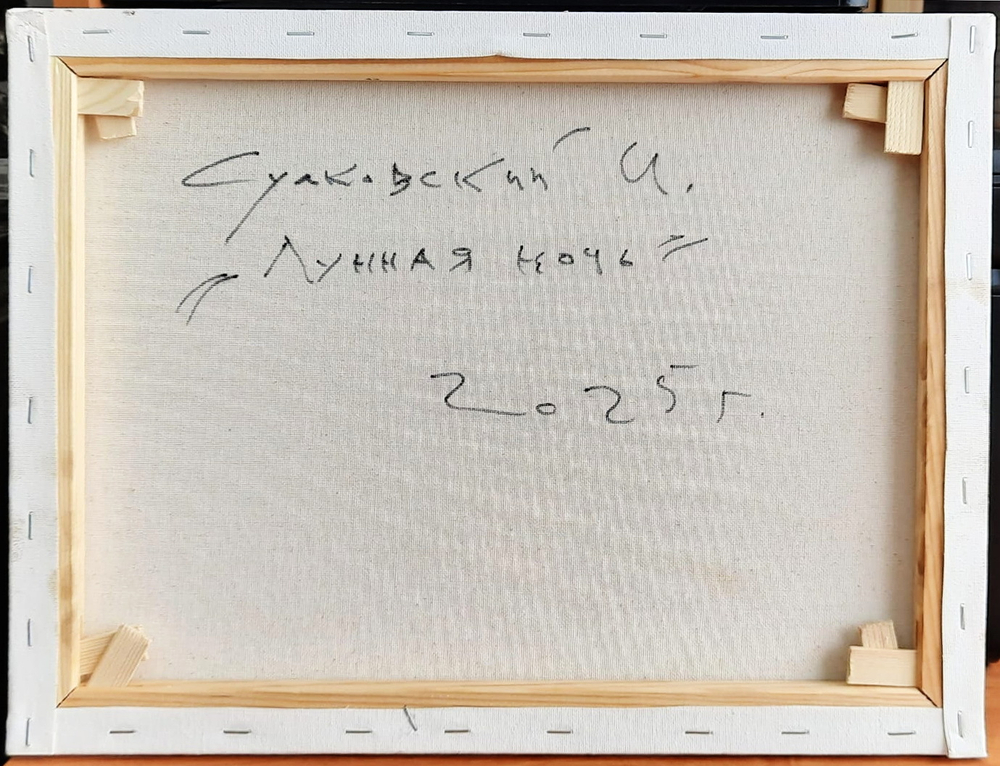 Сулковский И.
„Лунная ночь"
2025г.